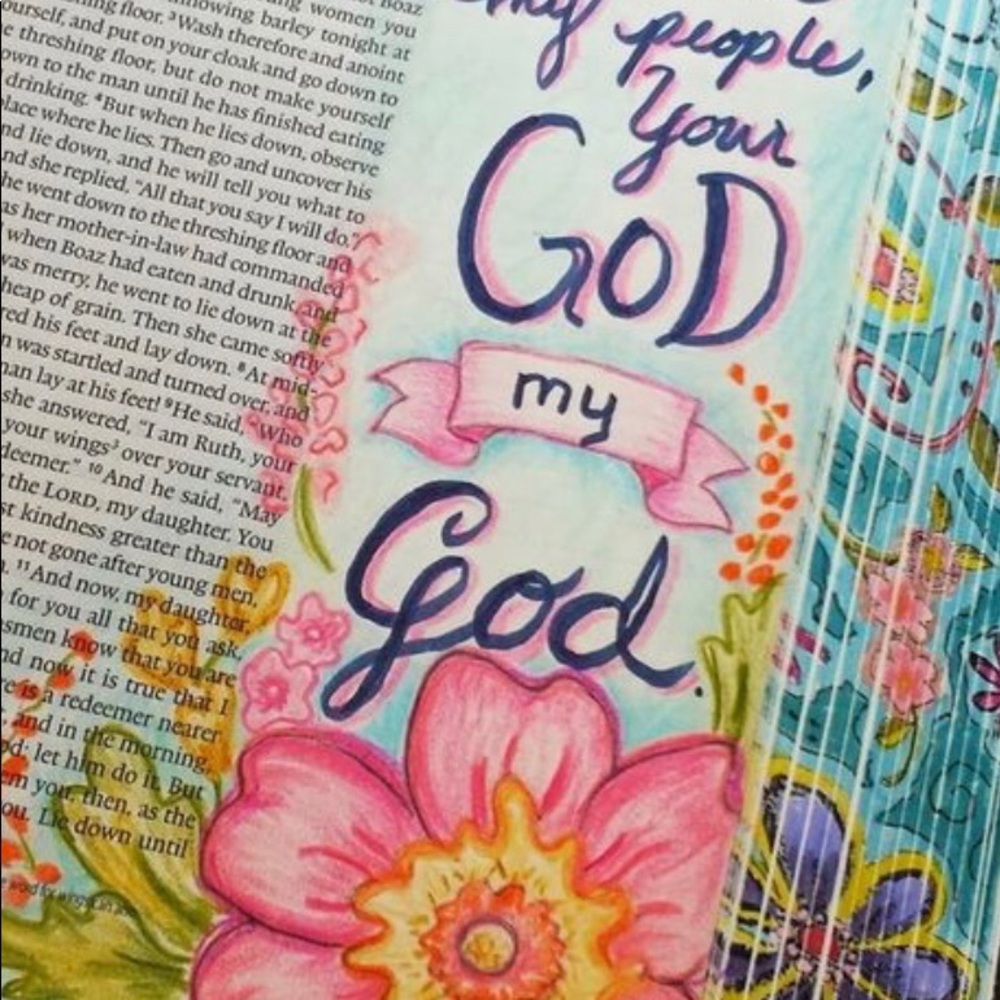 women you
winnowing barley tonight at
floor. ³Wash therefore and anoint
and put on your cloak and go down to
threshing floor, but do not make yourself
to the man until he has finished eating
drinking. ⁴But when he lies down, observe
where he lies. Then go and uncover his
lie down, and he will tell you what to
she replied, "All that you say I will do."
went down to the threshing floor and
as her mother-in-law had commanded
when Boaz had eaten and drunk, and
was merry, he went to lie down at the
heap of grain. Then she came softly
his feet and lay down. ⁸At mid-
was startled and turned over, and
lay at his feet! ⁹He said, "Who
she answered, "I am Ruth, your
your wings³ over your servant,
¹⁰And he said, "May
the LORD, my daughter. You
kindness greater than the
not gone after young men,
¹¹And now, my daughter,
for you all that you ask,
know that you are
now it is true that I
is a redeemer nearer
and in the morning,
let him do it. But
you, then, as the
Lie down until
my
people,
Your
GOD
my
God.